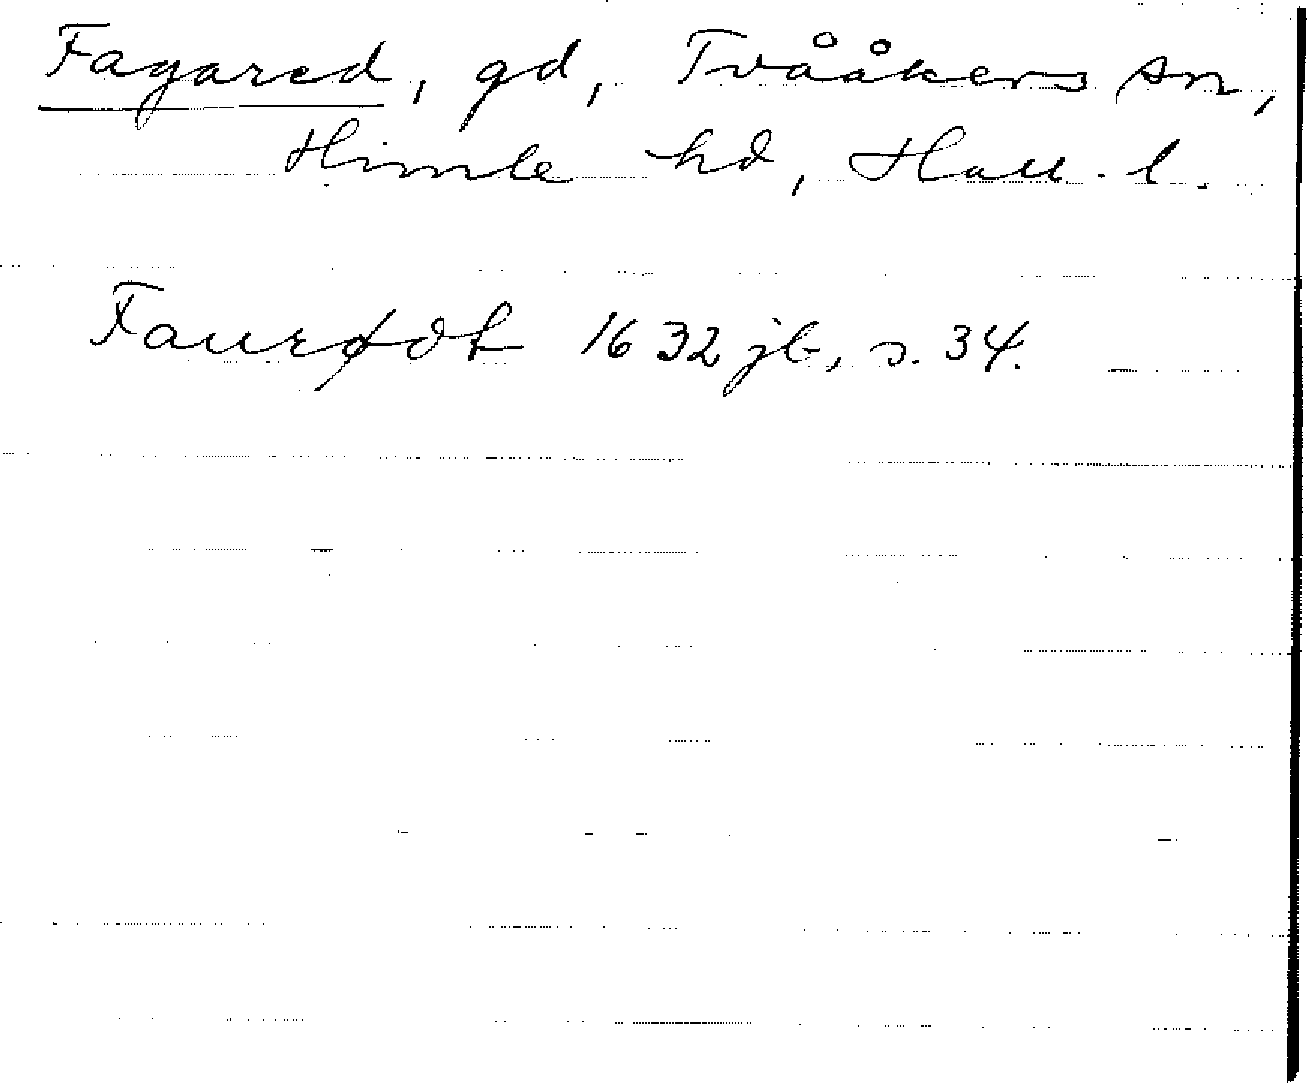 Fagared, gd, Tvååkers sn,
Himle hd, Hall. l.
Faurødt 1632 jb, s. 34.